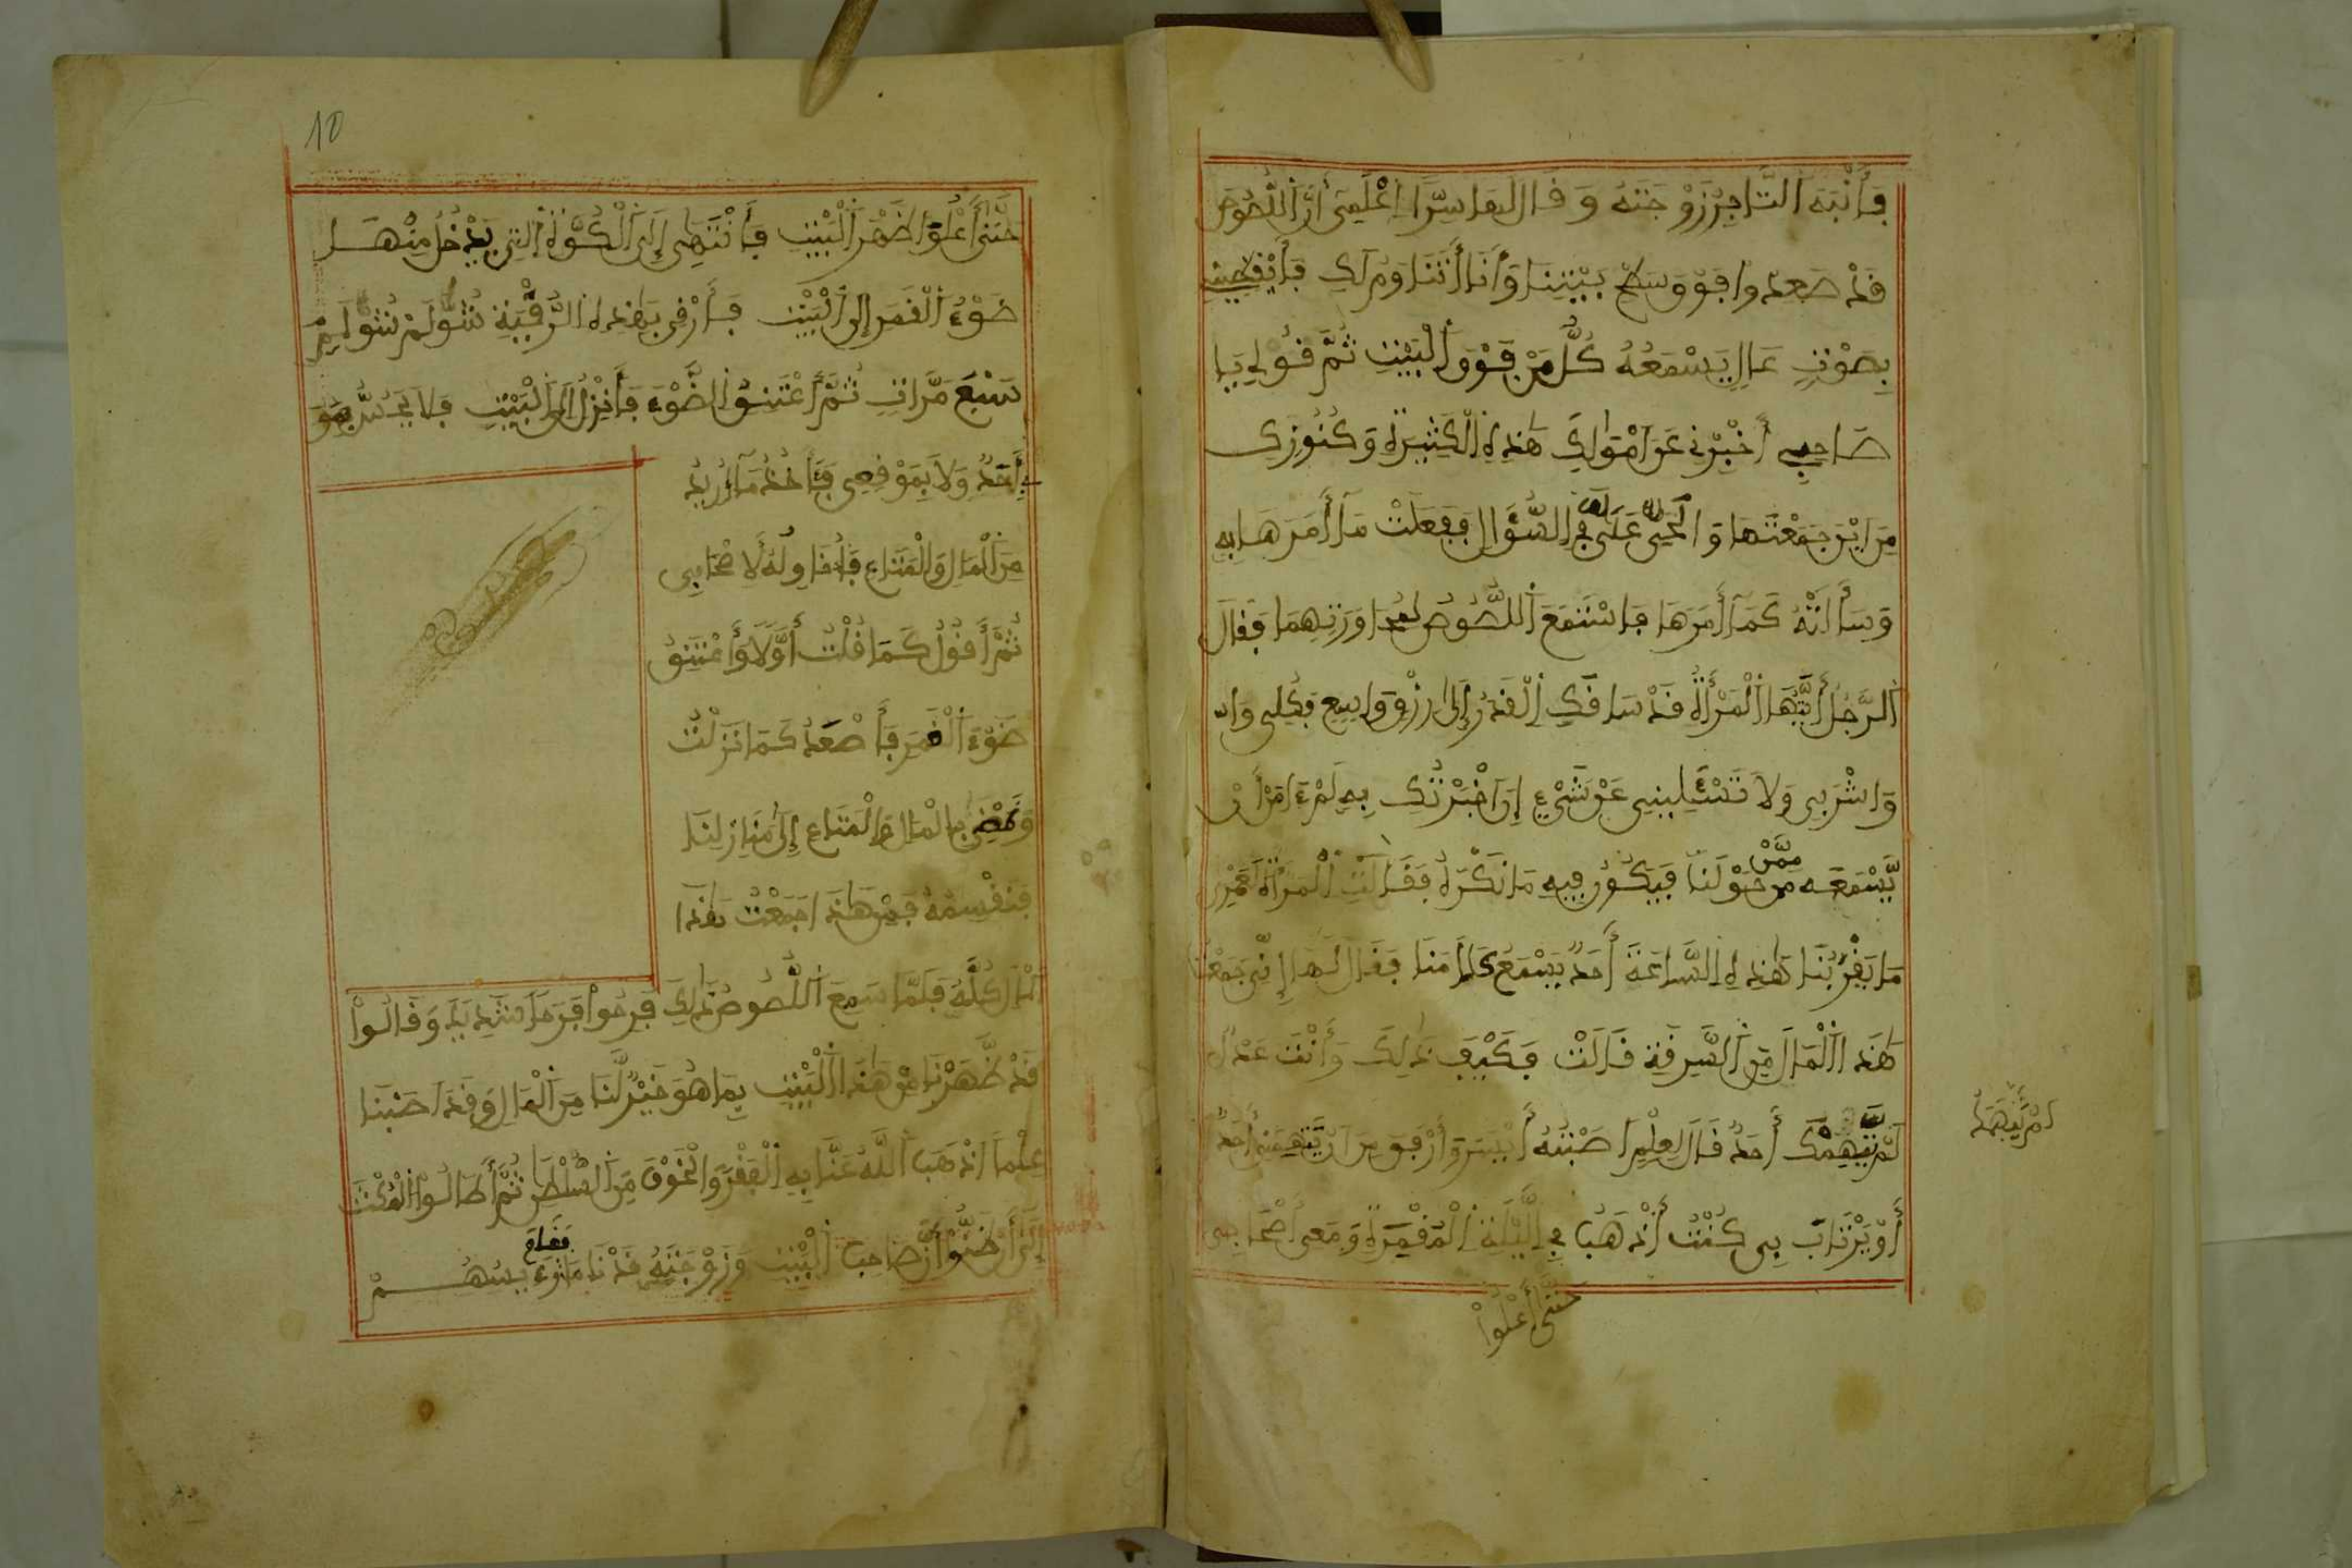 فَأَنْبَهَ التَّاجِرُ زَوْجَتَهُ وَقَالَ لَهَا سِرًّا اِعْلَمِي أَنَّ اللُّصُوصَ
قَدْ صَعِدُوا فَوْقَ سَطْحِ بَيْتِنَا وَأَنَا أَتَنَاوَمُ لَكِ فَأَيْقِظِينِي
بِصَوْتٍ عَالٍ يَسْمَعُهُ كُلُّ مَنْ فَوْقَ الْبَيْتِ ثُمَّ قُولِي يَا
صَاحِبِي أَخْبِرْنِي عَنْ أَمْوَالِكَ هَذِهِ الْكَثِيرَةِ وَكُنُوزِكَ
مِنْ أَيْنَ جَمَعْتَهَا وَ أَلِحِّي عَلَيَّ فِي السُّؤَالِ فَفَعَلَتْ مَا أَمَرَهَا بِهِ
وَسَأَلَتْهُ كَمَا أَمَرَهَا فَاسْتَمَعَ اللُّصُوصُ لِمُحَاوَرَتِهِمَا فَقَالَ
الرَّجُلُ أَيَّتُهَا الْمَرْأَةُ قَدْ سَاقَكِ الْقَدَرُ إِلَى رِزْقٍ وَاسِعٍ فَكُلِي
وَاشْرَبِي وَلَا تَسْئَلِينِي عَنْ شَيْءٍ إِنْ أَخْبَرْتُكِ بِهِ لَمْ ءَامَنْ أَنْ
يَسْمَعَهُ مِمَّنْ حَوْلَنَا فَيَكُونُ فِيهِ مَا نَكْرَهُ فَقَالَتِ الْمَرْأَةُ
مَا بِقُرْبِنَا هَذِهِ السَّاعَةَ أَحَدٌ يَسْمَعُ كَلَامَنَا فَقَالَ لَهَا إِنِّي جَمَعْتُ
هَذَا الْمَالَ مِنَ السَّرِقَةِ قَالَتْ فَكَيْفَ ذَلِكَ وَأَنْتَ عَدْلٌ
لَمْ يَتَّهِمْكَ أَحَدٌ قَالَ لِعِلْمٍ أَصَبْتُهُ أَيْسَرَ وَأَرْفَقَ مِنْ أَنْ يَتَّهِمَنِي أَحَدٌ
أَوْ يَرْتَابَ بِي كُنْتُ أَذْهَبُ فِي اللَّيْلَةِ الْمُقْمِرَةِ وَمَعِي أَصْحَابِي
حَتَّى أَعْلُوَا
10
حَتَّى أَعْلُوَا ظَهْرَ الْبَيْتِ فَأَنْتَهِي إِلَى الْكُوَّةِ الَّتِي يَدْخُلُ مِنْهَا
ضَوْءُ الْقَمَرِ إِلَى الْبَيْتِ فَأَرْقِي بِهَذِهِ الرُّقْيَةِ شُولَمْ شُولَمْ
سَبْعَ مَرَّاتٍ ثُمَّ أَعْتَنِقُ الضَّوْءَ فَأَنْزِلُ إِلَى الْبَيْتِ فَلَا يَحُسُّ
أَحَدٌ وَلَا بِمَوْقِعِي فَأَاخُذُ مَا أُرِيدُ
مِنَ الْمَالِ وَالْمَتَاعِ فَأُنَاوِلُهُ لِأَصْحَابِي
ثُمَّ أَقُولُ كَمَا قُلْتُ أَوَّلًا وَأَعْتَنِقُ
ضَوْءَ الْقَمَرِ فَأَصْعَدُ كَمَا نَزَلْتُ
وَنَمْضِي بِالْمَالِ وَالْمَتَاعِ إِلَى مَنَازِلِنَا
فَنَقْسِمُهُ فَمِنْ هَذَا جَمَعْتُ هَذَا
الْمَالَ كُلَّهُ فَلَمَّا سَمِعَ اللُّصُوصُ ذَلِكَ فَرِحُوا فَرَحًا شَدِيدًا وَقَالُوا
قَدْ ظَهَرْنَا مِنْ هَذَا الْبَيْتِ بِمَا هُوَ خَيْرٌ لَّنَا مِنَ الْمَالِ وَقَدْ أَصَبْنَا
عِلْمًا أَذْهَبَ اللَّهُ عَنَّا بِهِ الْفَقْرَ وَالْخَوْفَ مِنَ السُّلْطَانِ ثُمَّ أَطَالُوا الْمُكْثَ
إِلَى أَنْ ظَنُّوا أَنَّ صَاحِبَ الْبَيْتِ وَزَوْجَتَهُ قَدْ نَامُوا فَقَامَ رَئِيسُهُمْ